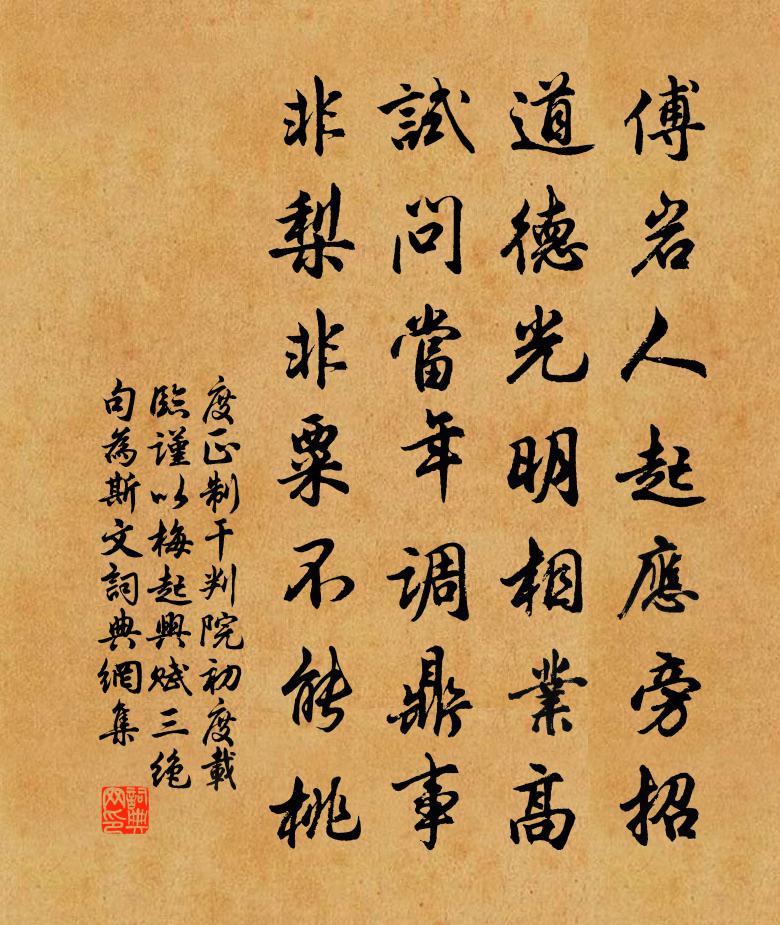 傅岩人起應旁招
道德光明相業高
試問當年调鼎事
非梨非粟不能桃
度正制干判院初度載
臨謹以梅起興賦三绝
句為斯文詞典網集
詞典網印